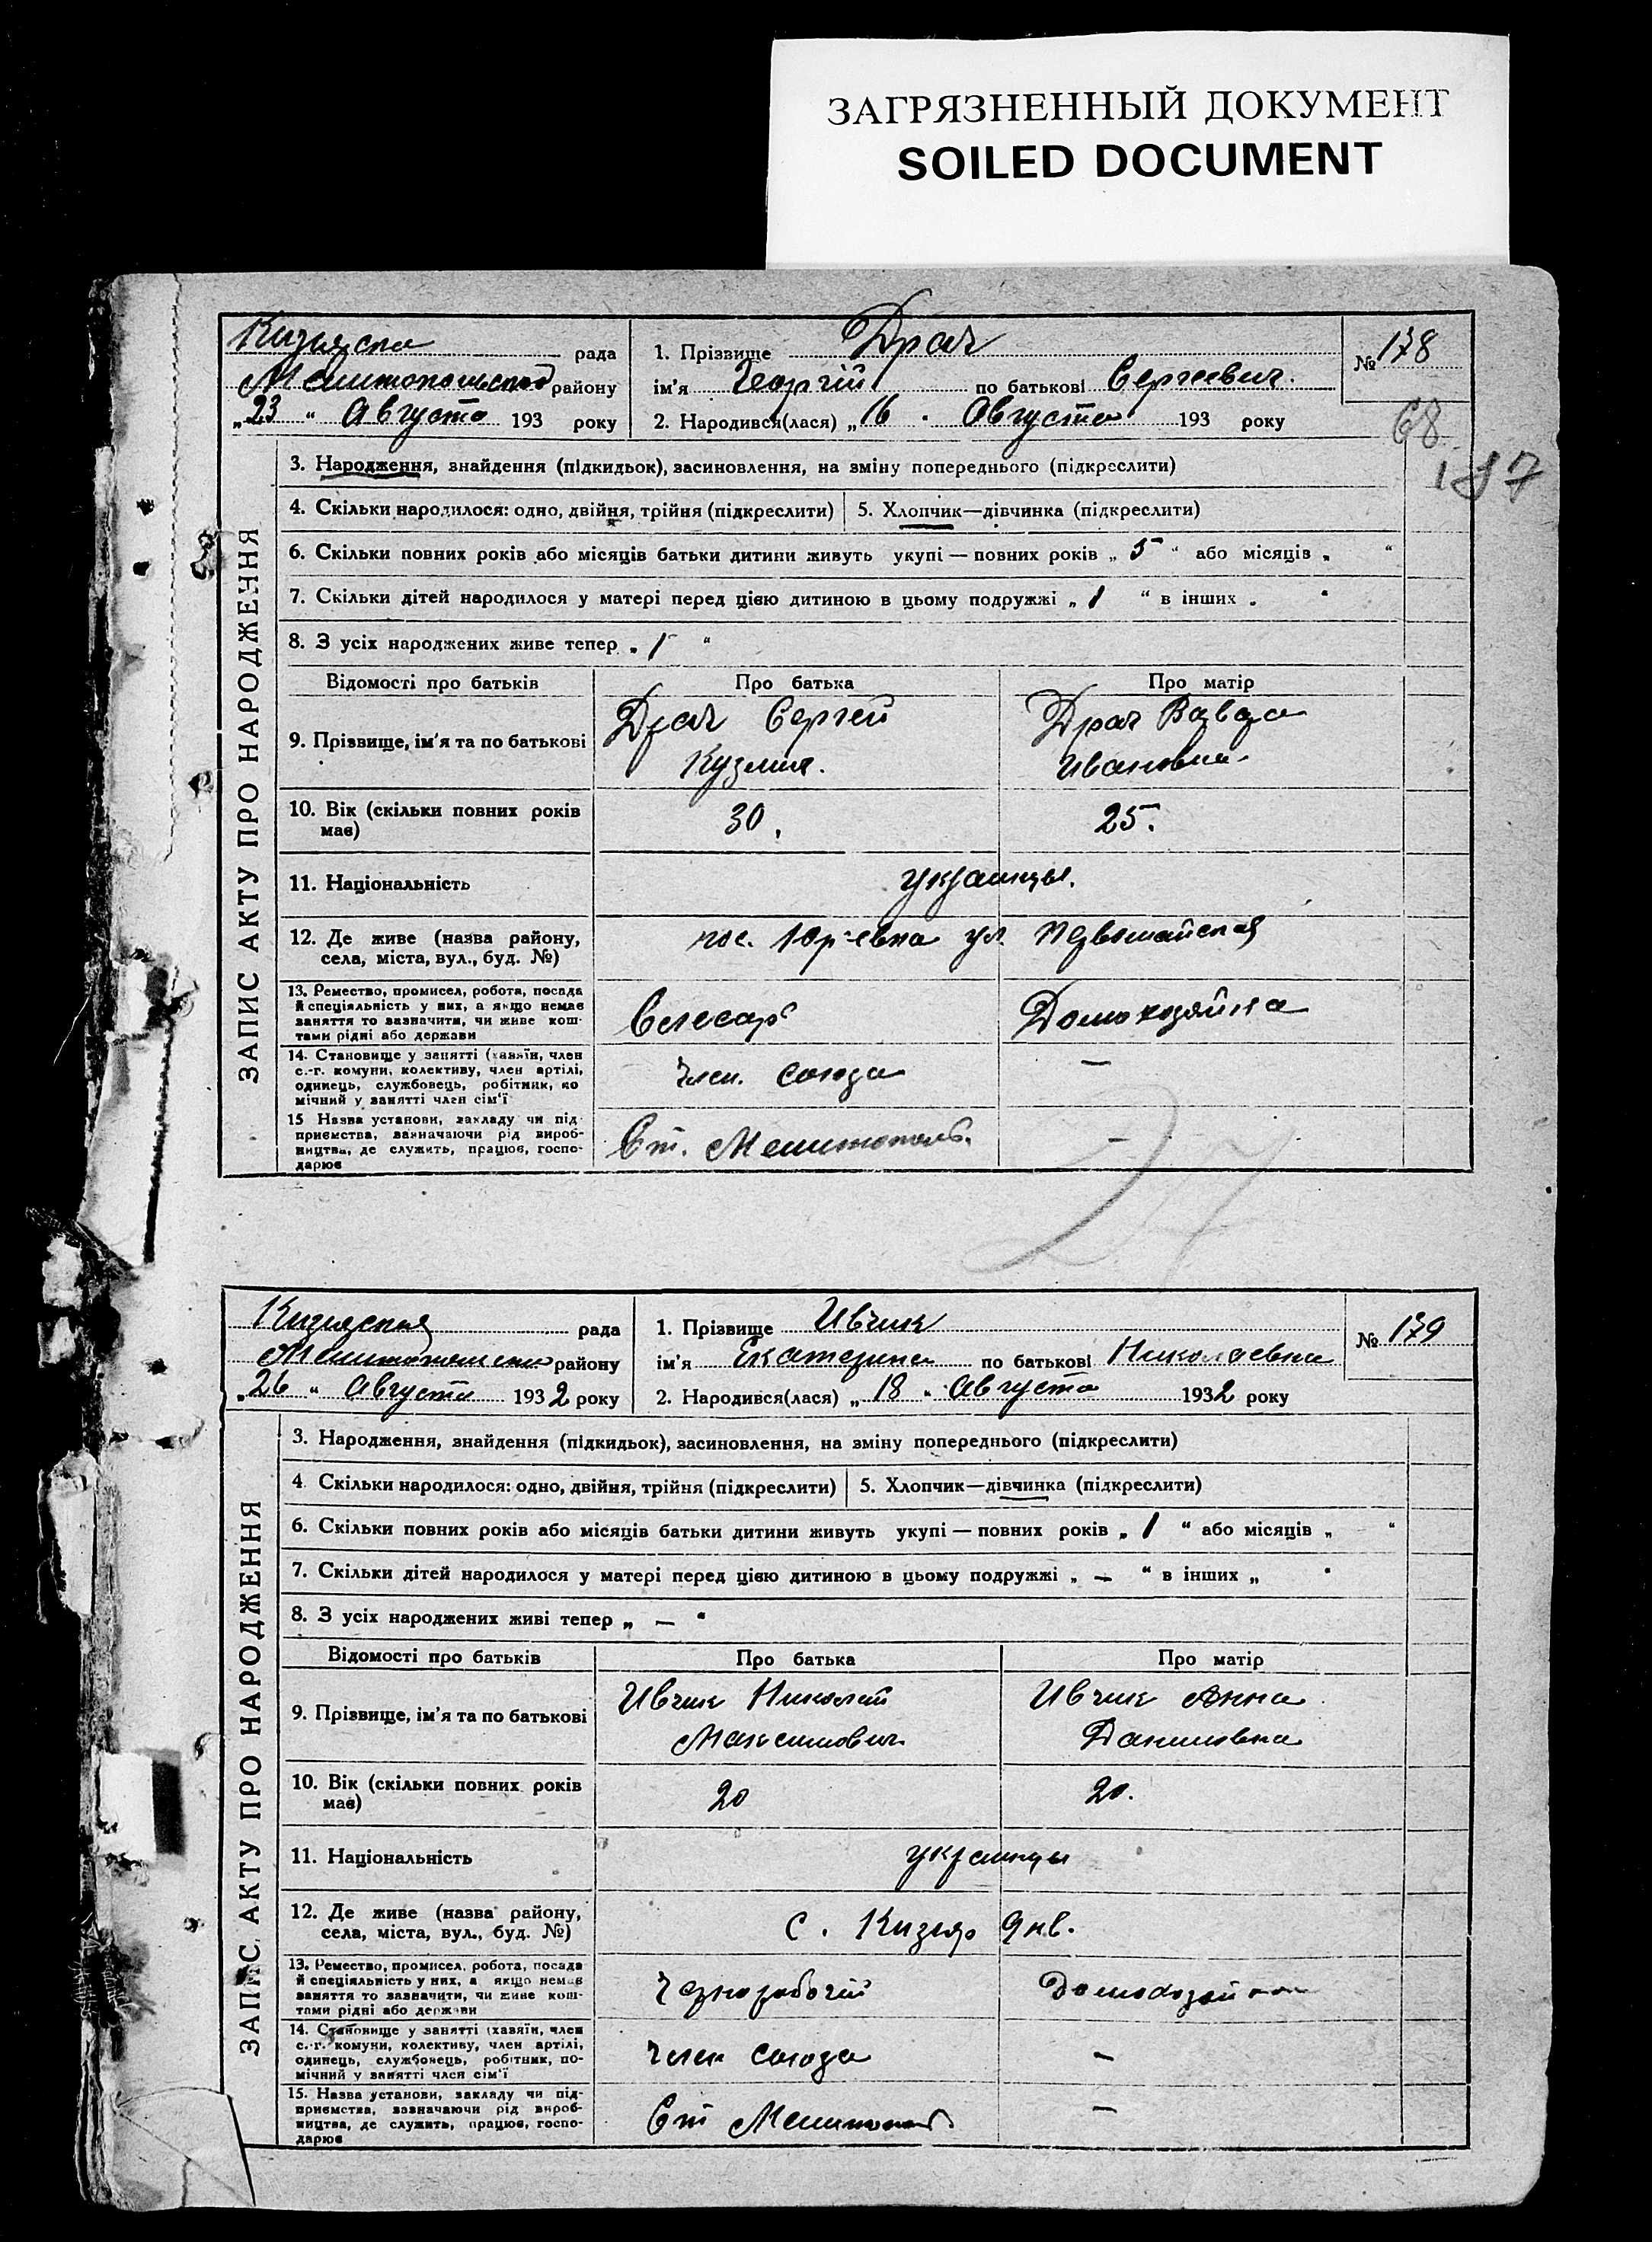 ЗАГРЯЗНЕННЫЙ ДОКУМЕНТ
SOILED DOCUMENT
рада
Мелитопольской району
„23 “ Августа 193 року
1. Прізвище Драч
ім'я Георгій по батькові Сергеевич.
2. Народився(лася) „16 “ Августа 193 року
№ 178
68
187
ЗАПИС АКТУ ПРО НАРОДЖЕННЯ
3. Народження, знайдення (підкидьок), засиновлення, на зміну попереднього (підкреслити)
4. Скільки народилося: одно, двійня, трійня (підкреслити) 5. Хлопчик—дівчинка (підкреслити)
6. Скільки повних років або місяців батьки дитини живуть укупі — повних років „ 5 “ або місяців „ “
7. Скільки дітей народилося у матері перед цією дитиною в цьому подружжі „ 1 “ в інших „ “
8. З усіх народжених живе тепер „ 1 “
Відомості про батьків Про батька Про матір
9. Прізвище, ім'я та по батькові
Драч Сергей
Кузмич.
Драч Варвара
Ивановна.
10. Вік (скільки повних років
має)
30. 25.
11. Національність украинцы.
12. Де живе (назва району,
села, міста, вул., буд. №)
пос. Юрʼевка ул Первомайская
13. Ремество, промисел, робота, посада
й спеціяльність у них, а якщо немає
заняття то зазначити, чи живе кош-
тами рідні або держави
Слесарь Домохозяйка
14. Становище у занятті (хазяїн, член
с.-г. комуни, колективу, член артілі,
одинець, службовець, робітник, по
мічний у занятті член сім'ї
Член. союза —
15 Назва установи, закладу чи під-
приємства, зазначаючи рід вироб-
ництва, де служить, працює, госпо-
дарює
Ст. Мелитополь. —
27
Кизиярская рада
району
„26 “ Августа 1932 року
1. Прізвище Ивчик
ім'я Екатерина по батькові Николаевна
2. Народився(лася) „ 18 “ Августа 1932 року
№ 179
ЗАПИС АКТУ ПРО НАРОДЖЕННЯ
3. Народження, знайдення (підкидьок), засиновлення, на зміну попереднього (підкреслити)
4. Скільки народилося: одно, двійня, трійня (підкреслити) 5. Хлопчик—дівчинка (підкреслити)
6. Скільки повних років або місяців батьки дитини живуть укупі — повних років „ 1 “ або місяців „ “
7. Скільки дітей народилося у матері перед цією дитиною в цьому подружжі „ — “ в інших „ “
8. З усіх народжених живі тепер „ — “
Відомості про батьків Про батька Про матір
9. Прізвище, ім'я та по батькові
Ивчик Николай
Максимович
Ивчик Анна
Даниловна
10. Вік (скільки повних років
має)
20 20.
11. Національність украинцы
12. Де живе (назва району,
села, міста, вул., буд. №)
с. Кизияр 9 кв.
13. Ремество, промисел, робота, посада
й спеціяльність у них, а якщо немає
заняття то зазначити, чи живе кош-
тами рідні або держави
Чернорабочий Домохозяйка
14. Становище у занятті (хазяїн, член
с.-г. комуни, колективу, член артілі,
одинець, службовець, робітник, по-
мічний у занятті член сім'ї
член союза —
15. Назва установи, закладу чи під-
приємства, зазначаючи рід вироб-
ництва, де служить, працює, госпо-
дарює
Ст Мелитополь —